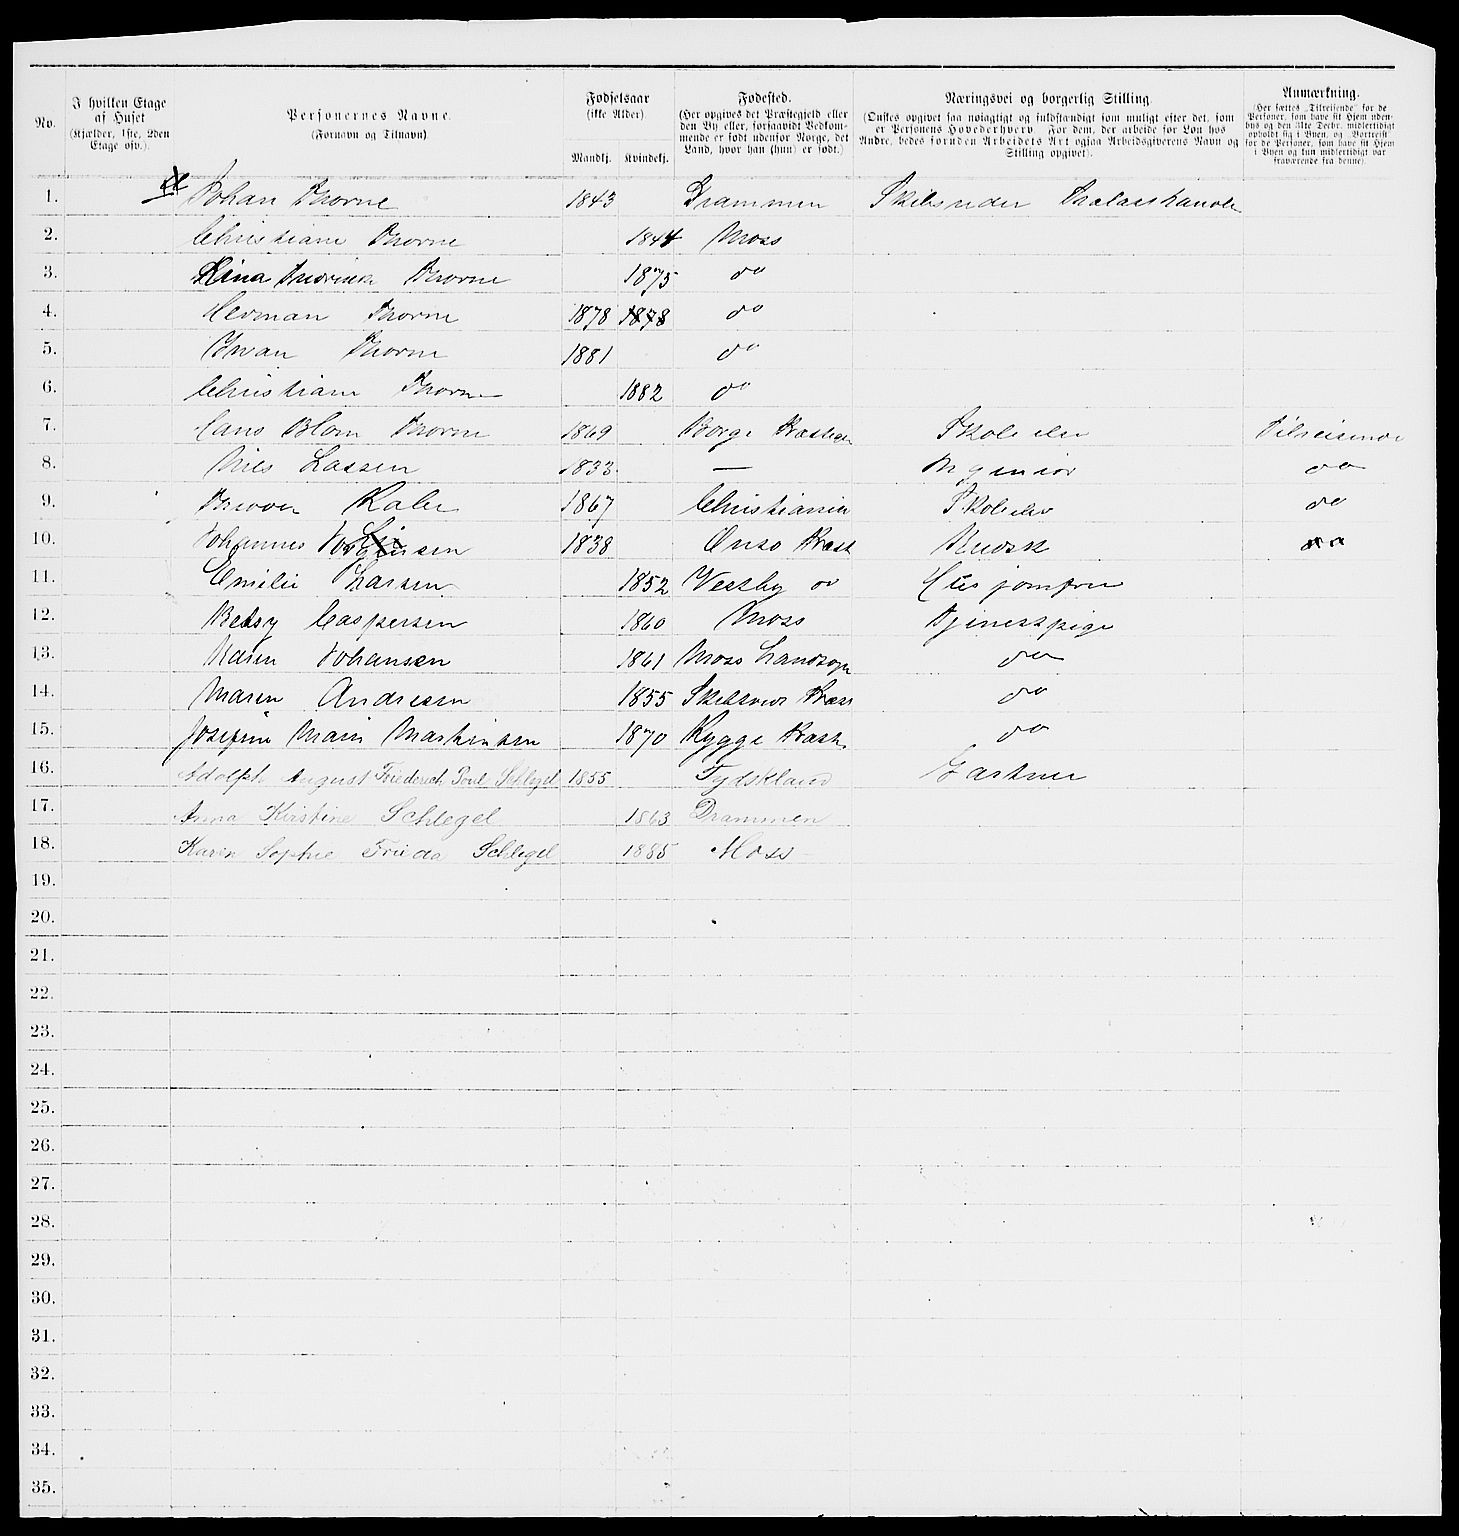 No. I hvilken Etage af Huset (Kjælder, 1ste, 2den Etage osv.). Personernes Navne. (Fornavn og Tilnavn). Fødselsaar (ikke Alder) Mandkj. Kvindekj. Fødested. (Her opgives det Præstegjeld eller den By eller, forsaavidt Vedkommende er født udenfor Norge, det Land, hvor han (hun) er født.) Næringsvei og borgerlig Stilling. (Ønskes opgivet saa nøiagtigt og fuldstændigt som muligt efter det, som er Personens Hovederhverv. For dem, der arbeide for Løn hos Andre, bedes foruden Arbeidets Art ogsaa Arbeidsgiverens Navn og Stilling opgivet). Anmærkning. (Her sættes „Tilreisende" for de Personer, som have sit Hjem udenbys og den 31te Decbr. midlertidigt opholdt sig i Byen, og „Bortreist" for de Personer, som have sit Hjem i Byen og kun midlertidigt var fraværende fra denne).
1. Johan Thorne 1843 Drammen Skibsreder Trælasthandle
2. Christiane Thorne 1844 Moss
3. Thorne 1875 do
4. Herman Thorne 1878 1878 do
5. Iwan Thorne 1881 do
6. Christiane Thorne 1882 do
7. Hans Blom Thorne 1869 Borge Skoleelev Tilreisende
8. Nils Lassen 1833 — Ingeniør do
9. 1867 Christiania Skoleelev do
10. Johannes Jørgensen 1838 Onsø Præst Kudsk do
11. Emilie Larsen 1852 Vestby do Husjomfru
12. Betsy Caspersen 1860 Moss Tjenestpige
13. Karen Johansen 1861 Moss Landsogn do
14. Maren Andresen 1855 Skibtvedt Præst do
15. Josefine Marie Martinsen 1870 Rygge Præst do
16. Adolph August Friederich Poul Schlegel 1855 Tydskland Gartner
17. Anna Kirstine Schlegel 1863 Drammen
18. Karen Sophie Frieda Schlegel 1885 Moss
19.
20.
21.
22.
23.
24.
25.
26.
27.
28.
29.
30.
31.
32.
33.
34.
35.